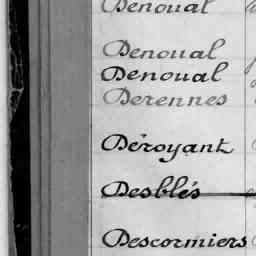 Denoual
Denoual
Denoual
Derennes
Déroyant
Desblés
Descormiers